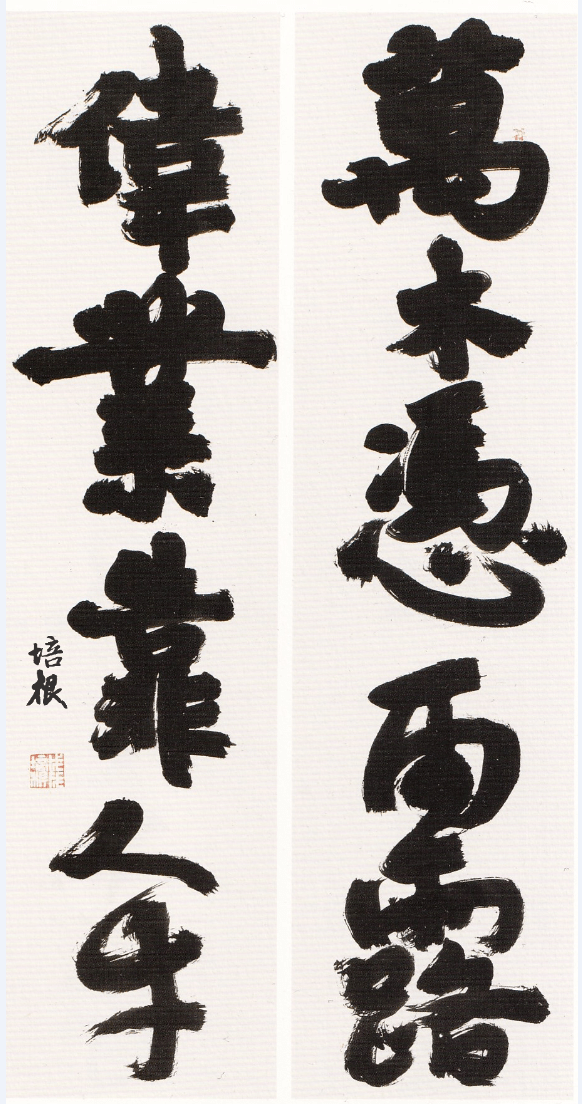 萬木憑雨露
偉業靠人才
培根